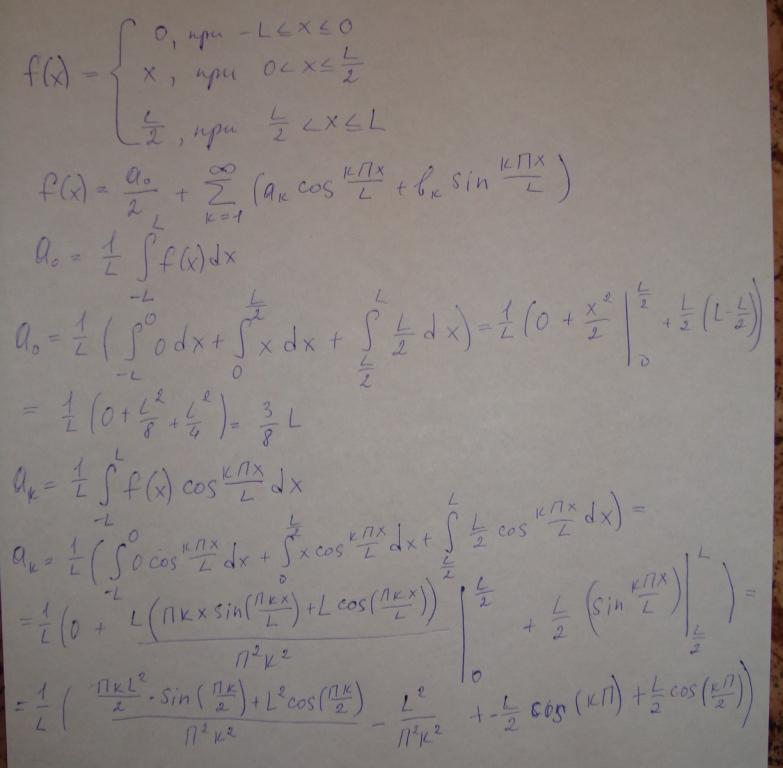 f(x) = { 0, при -L ≤ x ≤ 0
x, при 0 < x ≤ L/2
L/2, при L/2 < x ≤ L
f(x) = a₀/2 + ∑_{k=1}^{∞} (aₖ cos кПx/L + bₖ sin кПx/L)
a₀ = 1/L ∫_{-L}^{L} f(x)dx
a₀ = 1/L (∫_{-L}^{0} 0 dx + ∫_{0}^{L/2} x dx + ∫_{L/2}^{L} L/2 dx) = 1/L (0 + x²/2 |_{0}^{L/2} + L/2 (L - L/2))
= 1/L (0 + L²/8 + L²/4) = 3/8 L
aₖ = 1/L ∫_{-L}^{L} f(x) cos кПx/L dx
aₖ = 1/L (∫_{-L}^{0} 0 cos кПx/L dx + ∫_{0}^{L/2} x cos кПx/L dx + ∫_{L/2}^{L} L/2 cos кПx/L dx) =
= 1/L (0 + L(Пкx sin(Пкx/L) + L cos(Пкx/L))/П²к² |_{0}^{L/2} + L/2 (sin кПx/L) |_{L/2}^{L}) =
= 1/L ((ПкL²/2 · sin(Пк/2) + L² cos(Пк/2))/П²к² - L²/П²к² + -L/2 cos(кП) + L/2 cos(кП/2))